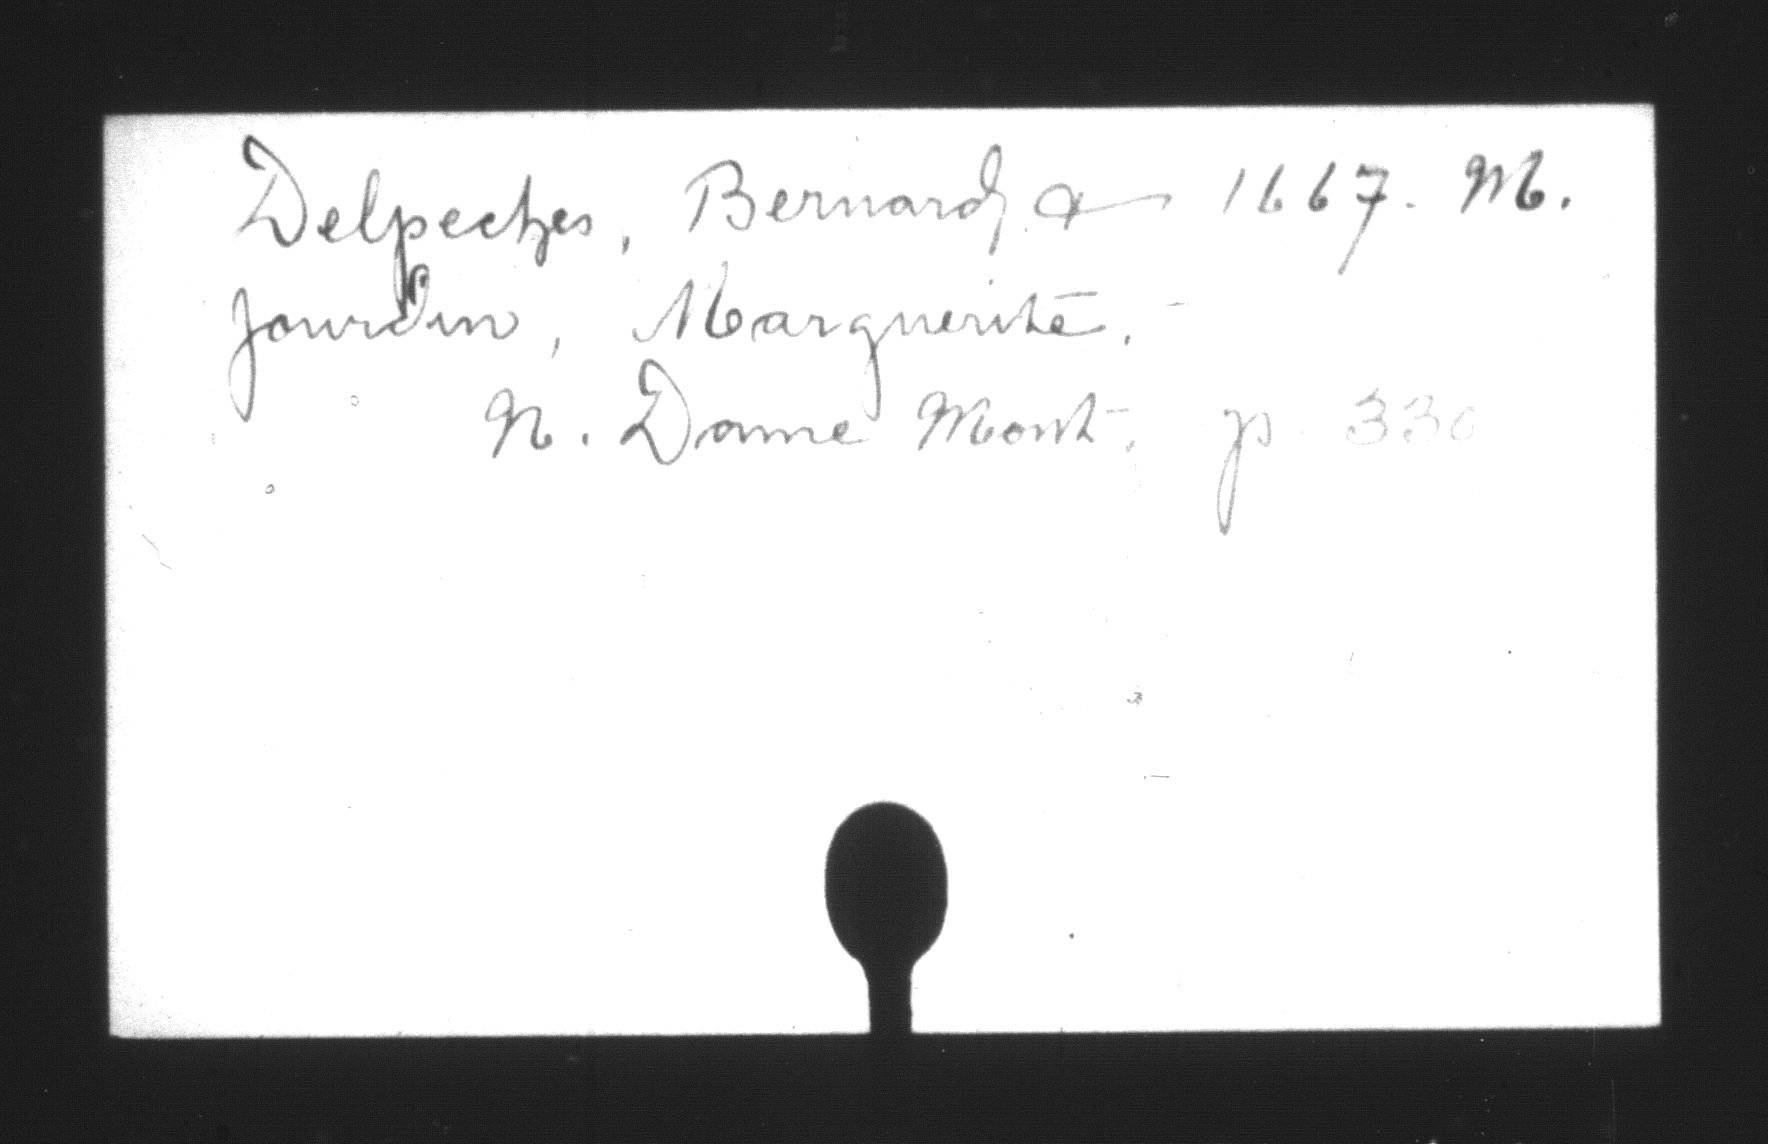 Delpeches, Bernard & 1667. M.
Jourdin, Marguerite.
N. Dame Mont. p 330